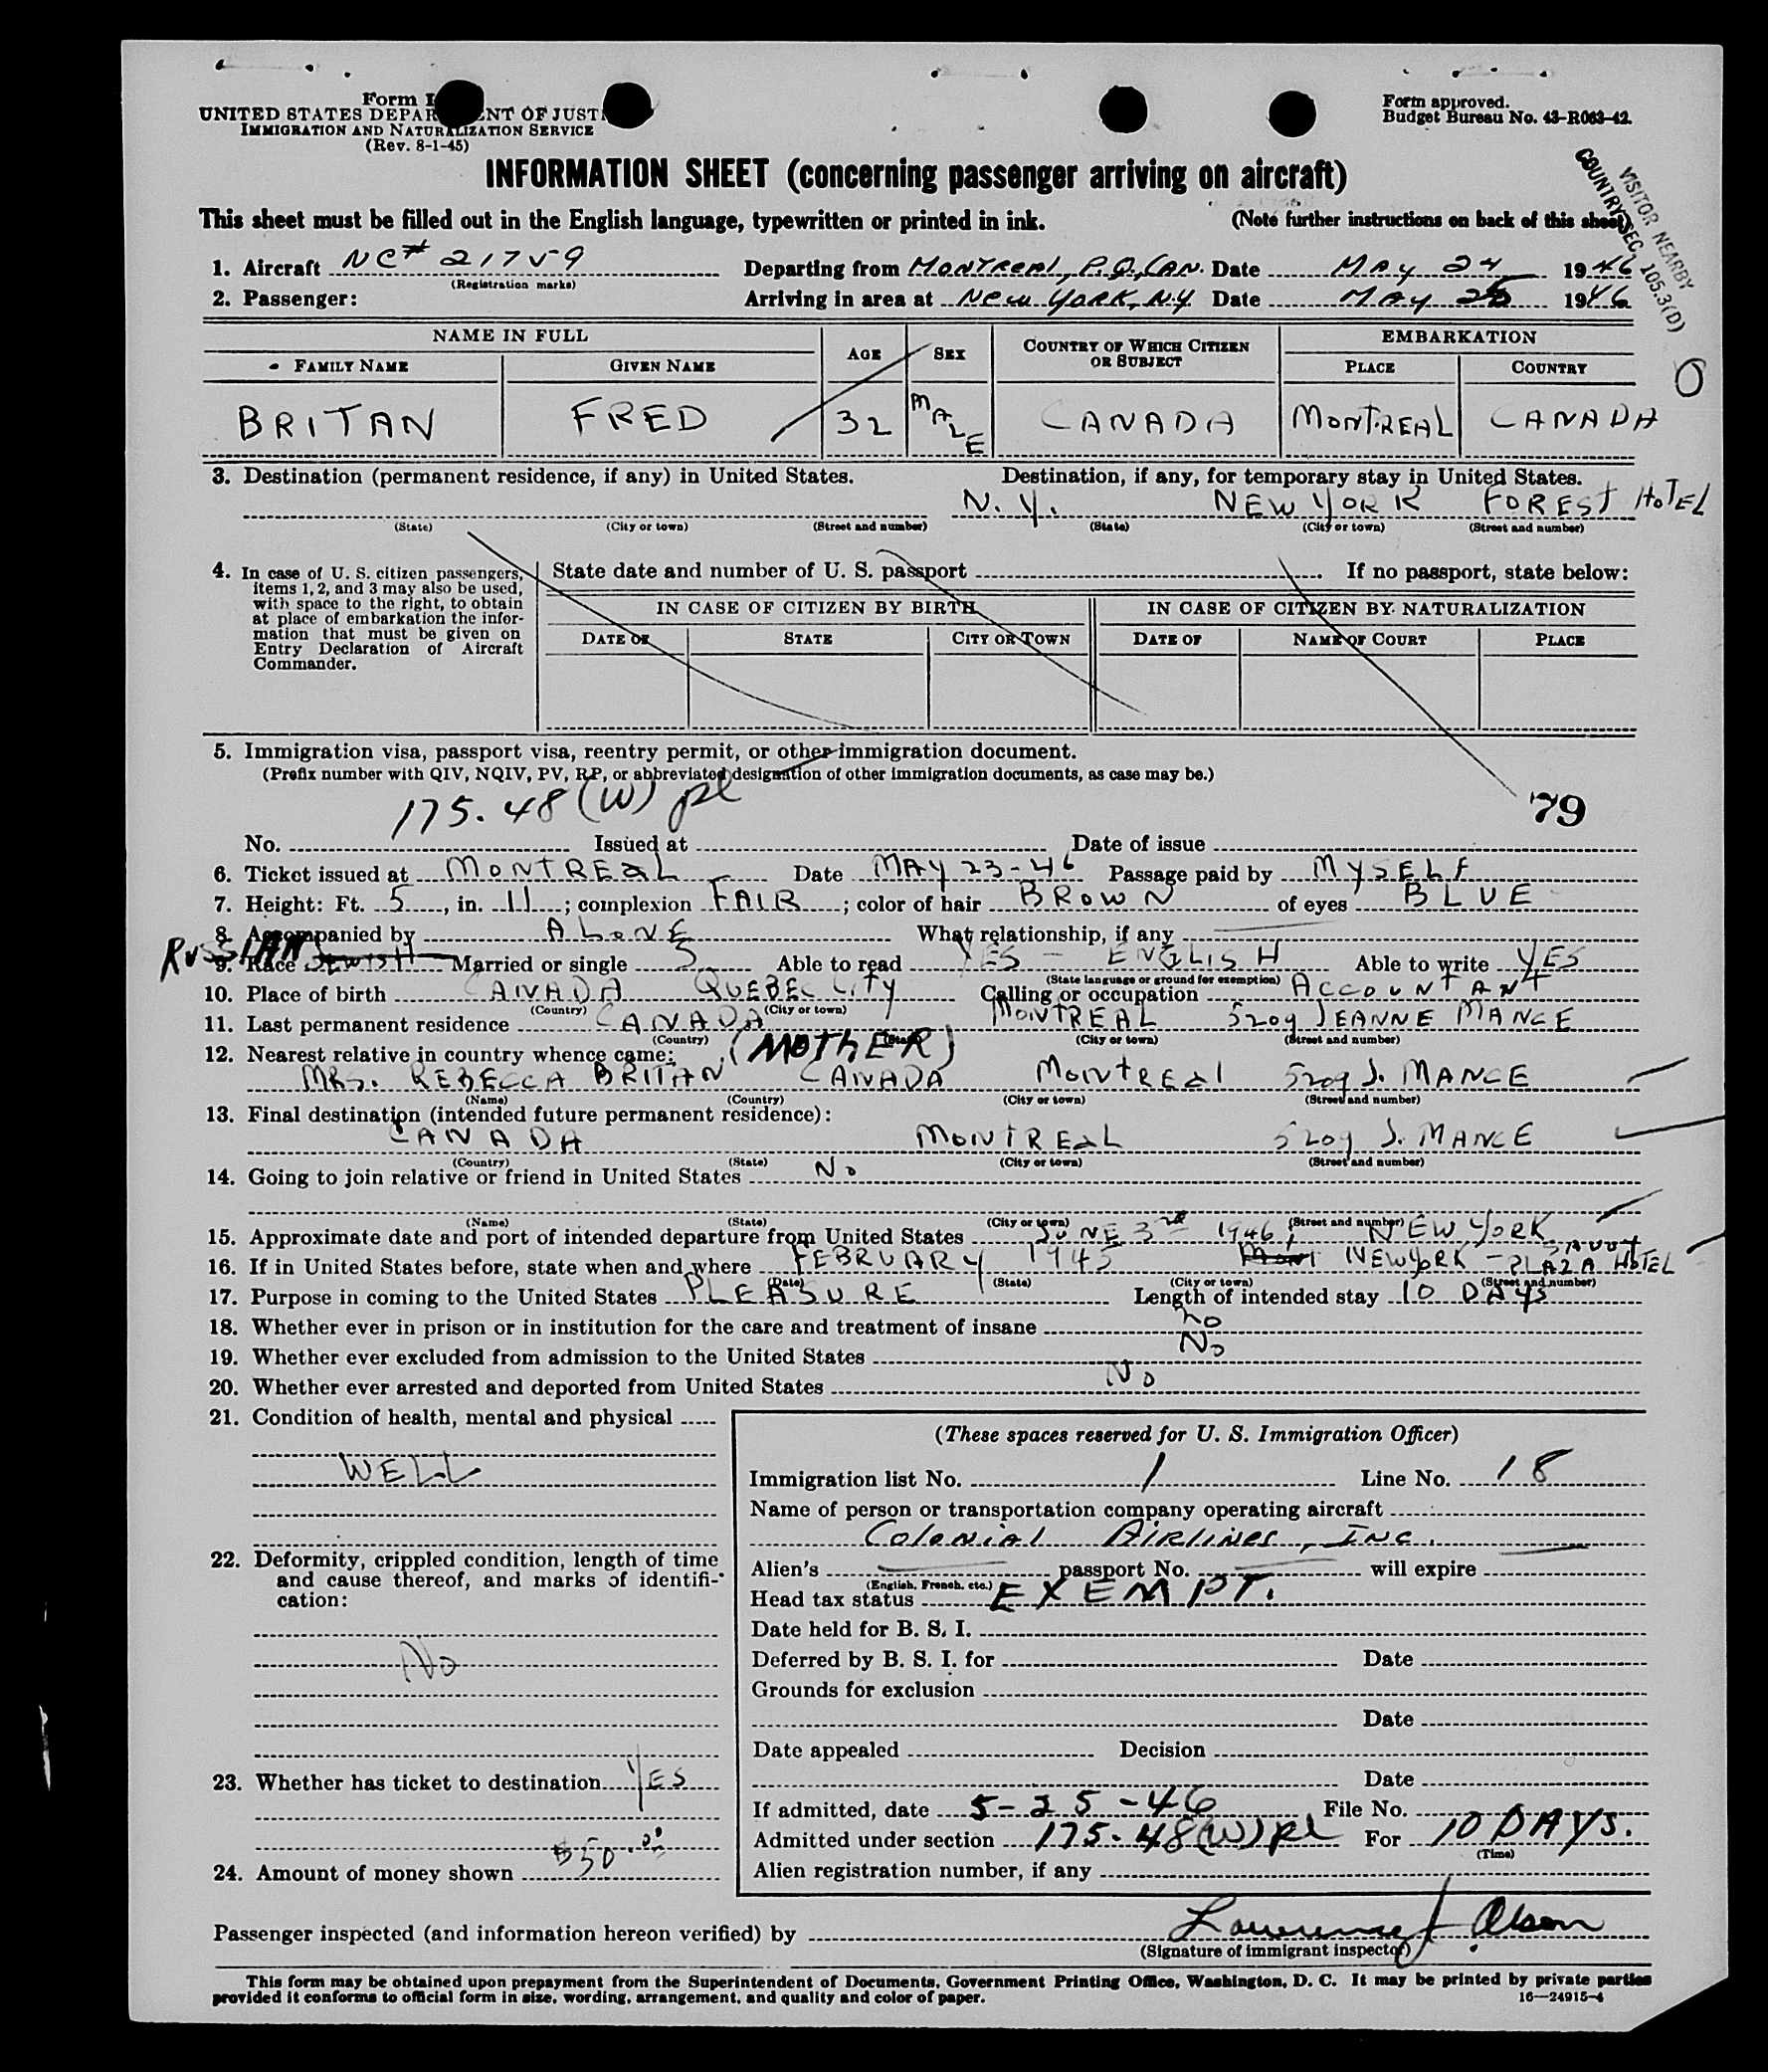 Form I
UNITED STATES DEPAR NT OF JUSTI
IMMIGRATION AND NATURALIZATION SERVICE
(Rev. 8-1-45)
Form approved.
Budget Bureau No. 43-R063-42.
INFORMATION SHEET (concerning passenger arriving on aircraft)
VISITOR NEARBY
COUNTRY SEC. 105.3(D)
This sheet must be filled out in the English language, typewritten or printed in ink. (Note further instructions on back of this sheet)
1. Aircraft NC# 21759 Departing from MONTREAL, P.Q., CAN. Date MAY 24 1946
(Registration marks)
2. Passenger: Arriving in area at NEW YORK, N.Y. Date MAY 25 1946
NAME IN FULL AGE SEX COUNTRY OF WHICH CITIZEN OR SUBJECT EMBARKATION
FAMILY NAME GIVEN NAME PLACE COUNTRY
O
BRITAN FRED 32 MALE CANADA MONTREAL CANADA
3. Destination (permanent residence, if any) in United States. Destination, if any, for temporary stay in United States.
N.Y. NEW YORK FOREST HOTEL
(State) (City or town) (Street and number) (State) (City or town) (Street and number)
4. In case of U. S. citizen passengers, items 1, 2, and 3 may also be used, with space to the right, to obtain at place of embarkation the information that must be given on Entry Declaration of Aircraft Commander.
State date and number of U. S. passport If no passport, state below:
IN CASE OF CITIZEN BY BIRTH IN CASE OF CITIZEN BY NATURALIZATION
DATE OF STATE CITY OR TOWN DATE OF NAME OF COURT PLACE
5. Immigration visa, passport visa, reentry permit, or other immigration document.
(Prefix number with QIV, NQIV, PV, RP, or abbreviated designation of other immigration documents, as case may be.)
175.48 (W) pl 79
No. Issued at Date of issue
6. Ticket issued at MONTREAL Date MAY 23-46 Passage paid by MYSELF
7. Height: Ft. 5, in. 11; complexion FAIR; color of hair BROWN of eyes BLUE
8. Accompanied by ALONE What relationship, if any
RUSSIAN
9. Race JEWISH Married or single S Able to read YES - ENGLISH Able to write YES
(State language or ground for exemption)
10. Place of birth CANADA QUEBEC CITY Calling or occupation ACCOUNTANT
(Country) (City or town)
11. Last permanent residence CANADA MONTREAL 5209 JEANNE MANCE
(Country) (State) (City or town) (Street and number)
12. Nearest relative in country whence came: (MOTHER)
MRS. REBECCA BRITAN CANADA MONTREAL 5209 J. MANCE
(Name) (Country) (City or town) (Street and number)
13. Final destination (intended future permanent residence):
CANADA MONTREAL 5209 J. MANCE
(Country) (State) (City or town) (Street and number)
14. Going to join relative or friend in United States NO
(Name) (State) (City or town) (Street and number)
15. Approximate date and port of intended departure from United States JUNE 3RD 1946, NEW YORK
16. If in United States before, state when and where FEBRUARY 1945 NEW YORK - SAVOY PLAZA HOTEL
(Date) (State) (City or town) (Street and number)
17. Purpose in coming to the United States PLEASURE Length of intended stay 10 DAYS
18. Whether ever in prison or in institution for the care and treatment of insane NO
19. Whether ever excluded from admission to the United States NO
20. Whether ever arrested and deported from United States NO
21. Condition of health, mental and physical
WELL
22. Deformity, crippled condition, length of time
and cause thereof, and marks of identifi-
cation:
NO
23. Whether has ticket to destination YES
24. Amount of money shown $50.00
(These spaces reserved for U. S. Immigration Officer)
Immigration list No. 1 Line No. 18
Name of person or transportation company operating aircraft
COLONIAL AIRLINES, INC.
Alien's passport No. will expire
(English, French, etc.)
Head tax status EXEMPT.
Date held for B. S. I.
Deferred by B. S. I. for Date
Grounds for exclusion
Date
Date appealed Decision
Date
If admitted, date 5-25-46 File No.
Admitted under section 175.48(W) pl For 10 DAYS.
(Time)
Alien registration number, if any
Passenger inspected (and information hereon verified) by Lawrence J. Olson
(Signature of immigrant inspector)
This form may be obtained upon prepayment from the Superintendent of Documents, Government Printing Office, Washington, D. C. It may be printed by private parties
provided it conforms to official form in size, wording, arrangement, and quality and color of paper. 16—24915-4